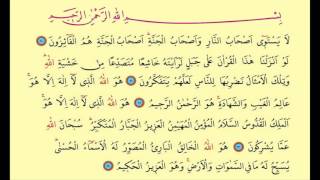 بِسْمِ اللهِ الرَّحْمٰنِ الرَّحِيمِ
لَا يَسْتَوِي أَصْحَابُ النَّارِ وَأَصْحَابُ الْجَنَّةِ أَصْحَابُ الْجَنَّةِ هُمُ الْفَائِزُونَ
لَوْ أَنْزَلْنَا هٰذَا الْقُرْآنَ عَلَى جَبَلٍ لَرَأَيْتَهُ خَاشِعًا مُتَصَدِّعًا مِنْ خَشْيَةِ اللهِ
وَتِلْكَ الْأَمْثَالُ نَضْرِبُهَا لِلنَّاسِ لَعَلَّهُمْ يَتَفَكَّرُونَ هُوَ اللهُ الَّذِي لَا إِلٰهَ إِلَّا هُوَ
عَالِمُ الْغَيْبِ وَالشَّهَادَةِ هُوَ الرَّحْمٰنُ الرَّحِيمُ هُوَ اللهُ الَّذِي لَا إِلٰهَ إِلَّا هُوَ
الْمَلِكُ الْقُدُّوسُ السَّلَامُ الْمُؤْمِنُ الْمُهَيْمِنُ الْعَزِيزُ الْجَبَّارُ الْمُتَكَبِّرُ سُبْحَانَ اللهِ
عَمَّا يُشْرِكُونَ هُوَ اللهُ الْخَالِقُ الْبَارِئُ الْمُصَوِّرُ لَهُ الْأَسْمَاءُ الْحُسْنَى
يُسَبِّحُ لَهُ مَا فِي السَّمٰوَاتِ وَالْأَرْضِ وَهُوَ الْعَزِيزُ الْحَكِيمُ